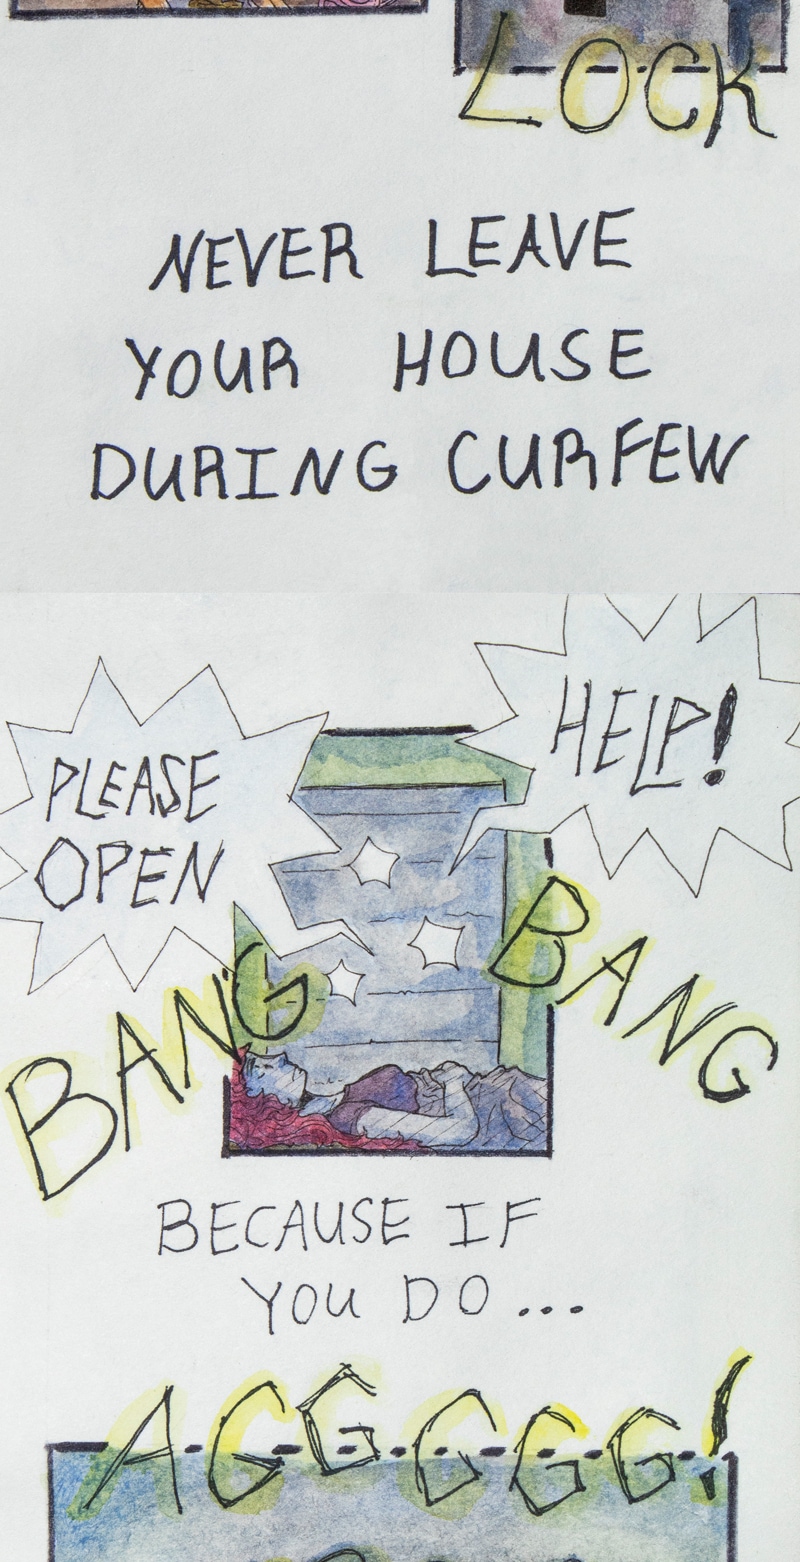 LOCK
NEVER LEAVE
YOUR HOUSE
DURING CURFEW
HELP!
PLEASE
OPEN
BANG
BANG
BECAUSE IF
YOU DO...
AGGGGG!